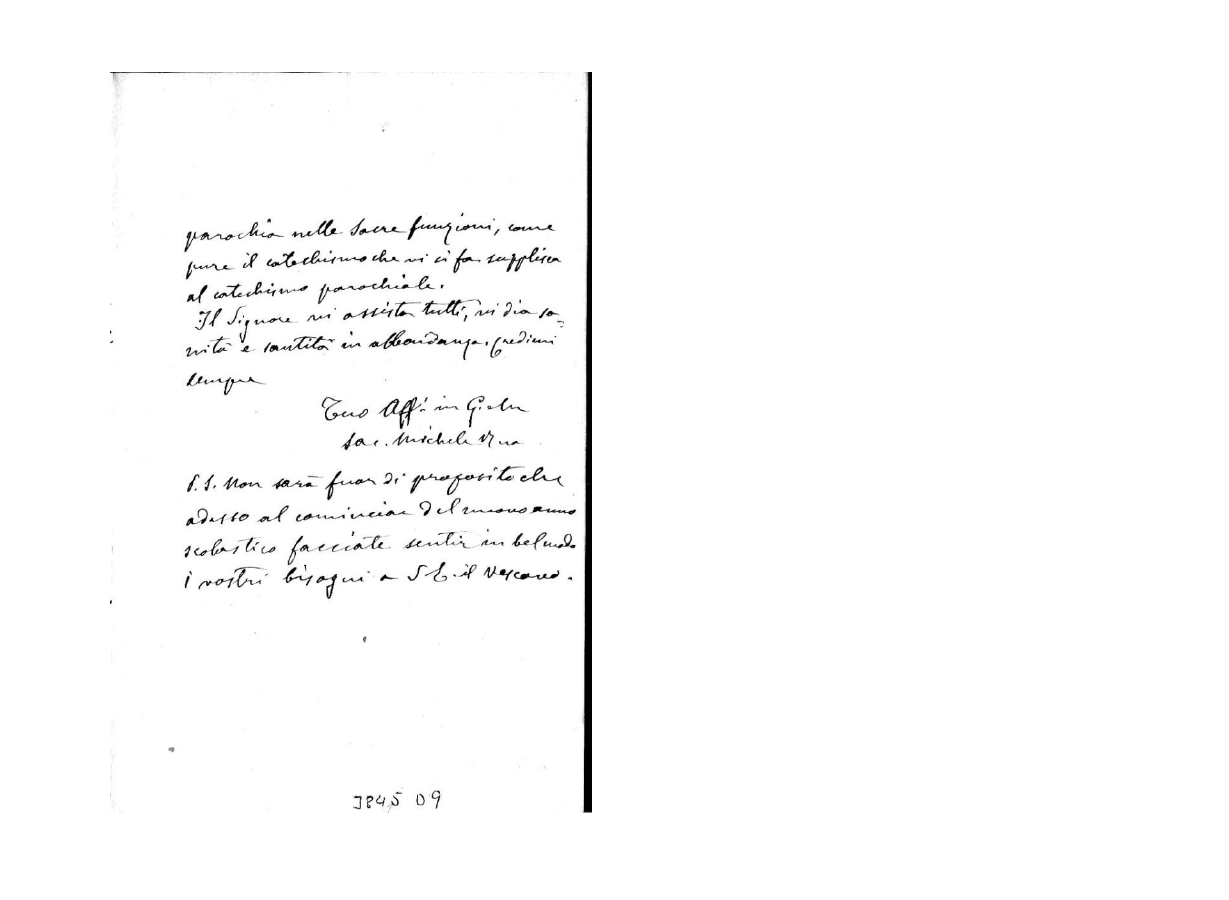 parochia nelle sacre funzioni, come
pure il catechismo che vi si fa supplisca
al catechismo parochiale.
Il Signore vi assista tutti, vi dia sa-
nità e santità in abbondanza. Credimi
sempre
Tuo Aff. in G.
Sac. Michele Rua
P.S. Non sarà fuor di proposito che
adesso al cominciar del nuovo anno
scolastico facciate sentir in bel modo
i vostri bisogni a S. E. il Vescovo.
3845 09